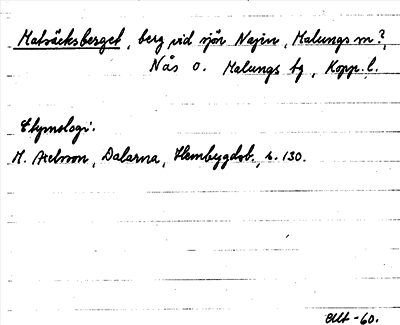 Matsäcksberget, berg vid sjön Najin, Malungs m?,
Nås o. Malungs tg, Kopp. l.
Etymologi:
M. Axelsson, Dalarna, Hembygdsb., s. 130.
-60.